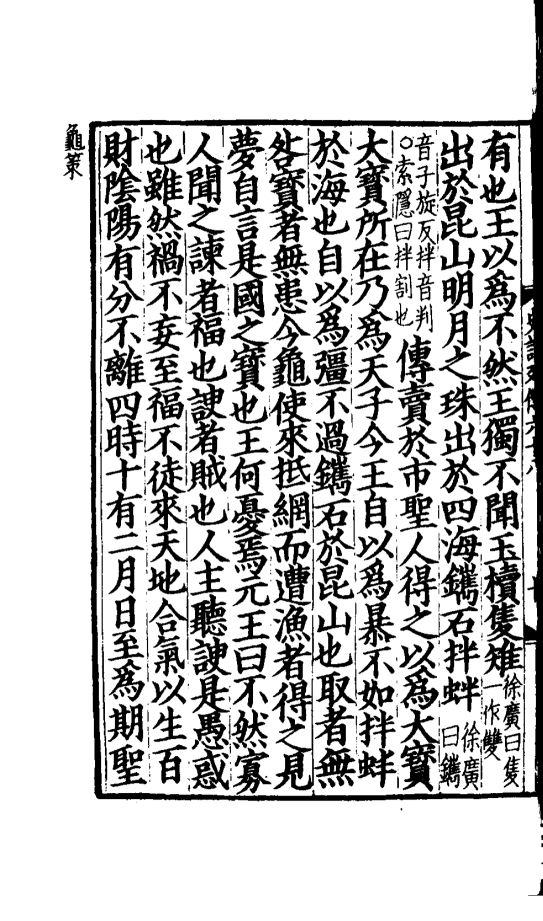 有也王以爲不然王獨不聞玉櫝隻雉徐廣曰隻一作雙
出於昆山明月之珠出於四海鐫石拌蚌徐廣曰鐫
音子旋反拌音判○索隱曰拌割也傳賣於市聖人得之以爲大寳
大寳所在乃爲天子今王自以爲暴不如拌蚌
於海也自以爲彊不過鐫石於昆山也取者無
咎寳者無患今龜使來抵網而遭漁者得之見
夢自言是國之寳也王何憂焉元王曰不然寡
人聞之諫者福也諛者賊也人主聽諛是愚惑
也雖然禍不妄至福不徒來天地合氣以生百
財陰陽有分不離四時十有二月日至爲期聖
龜策